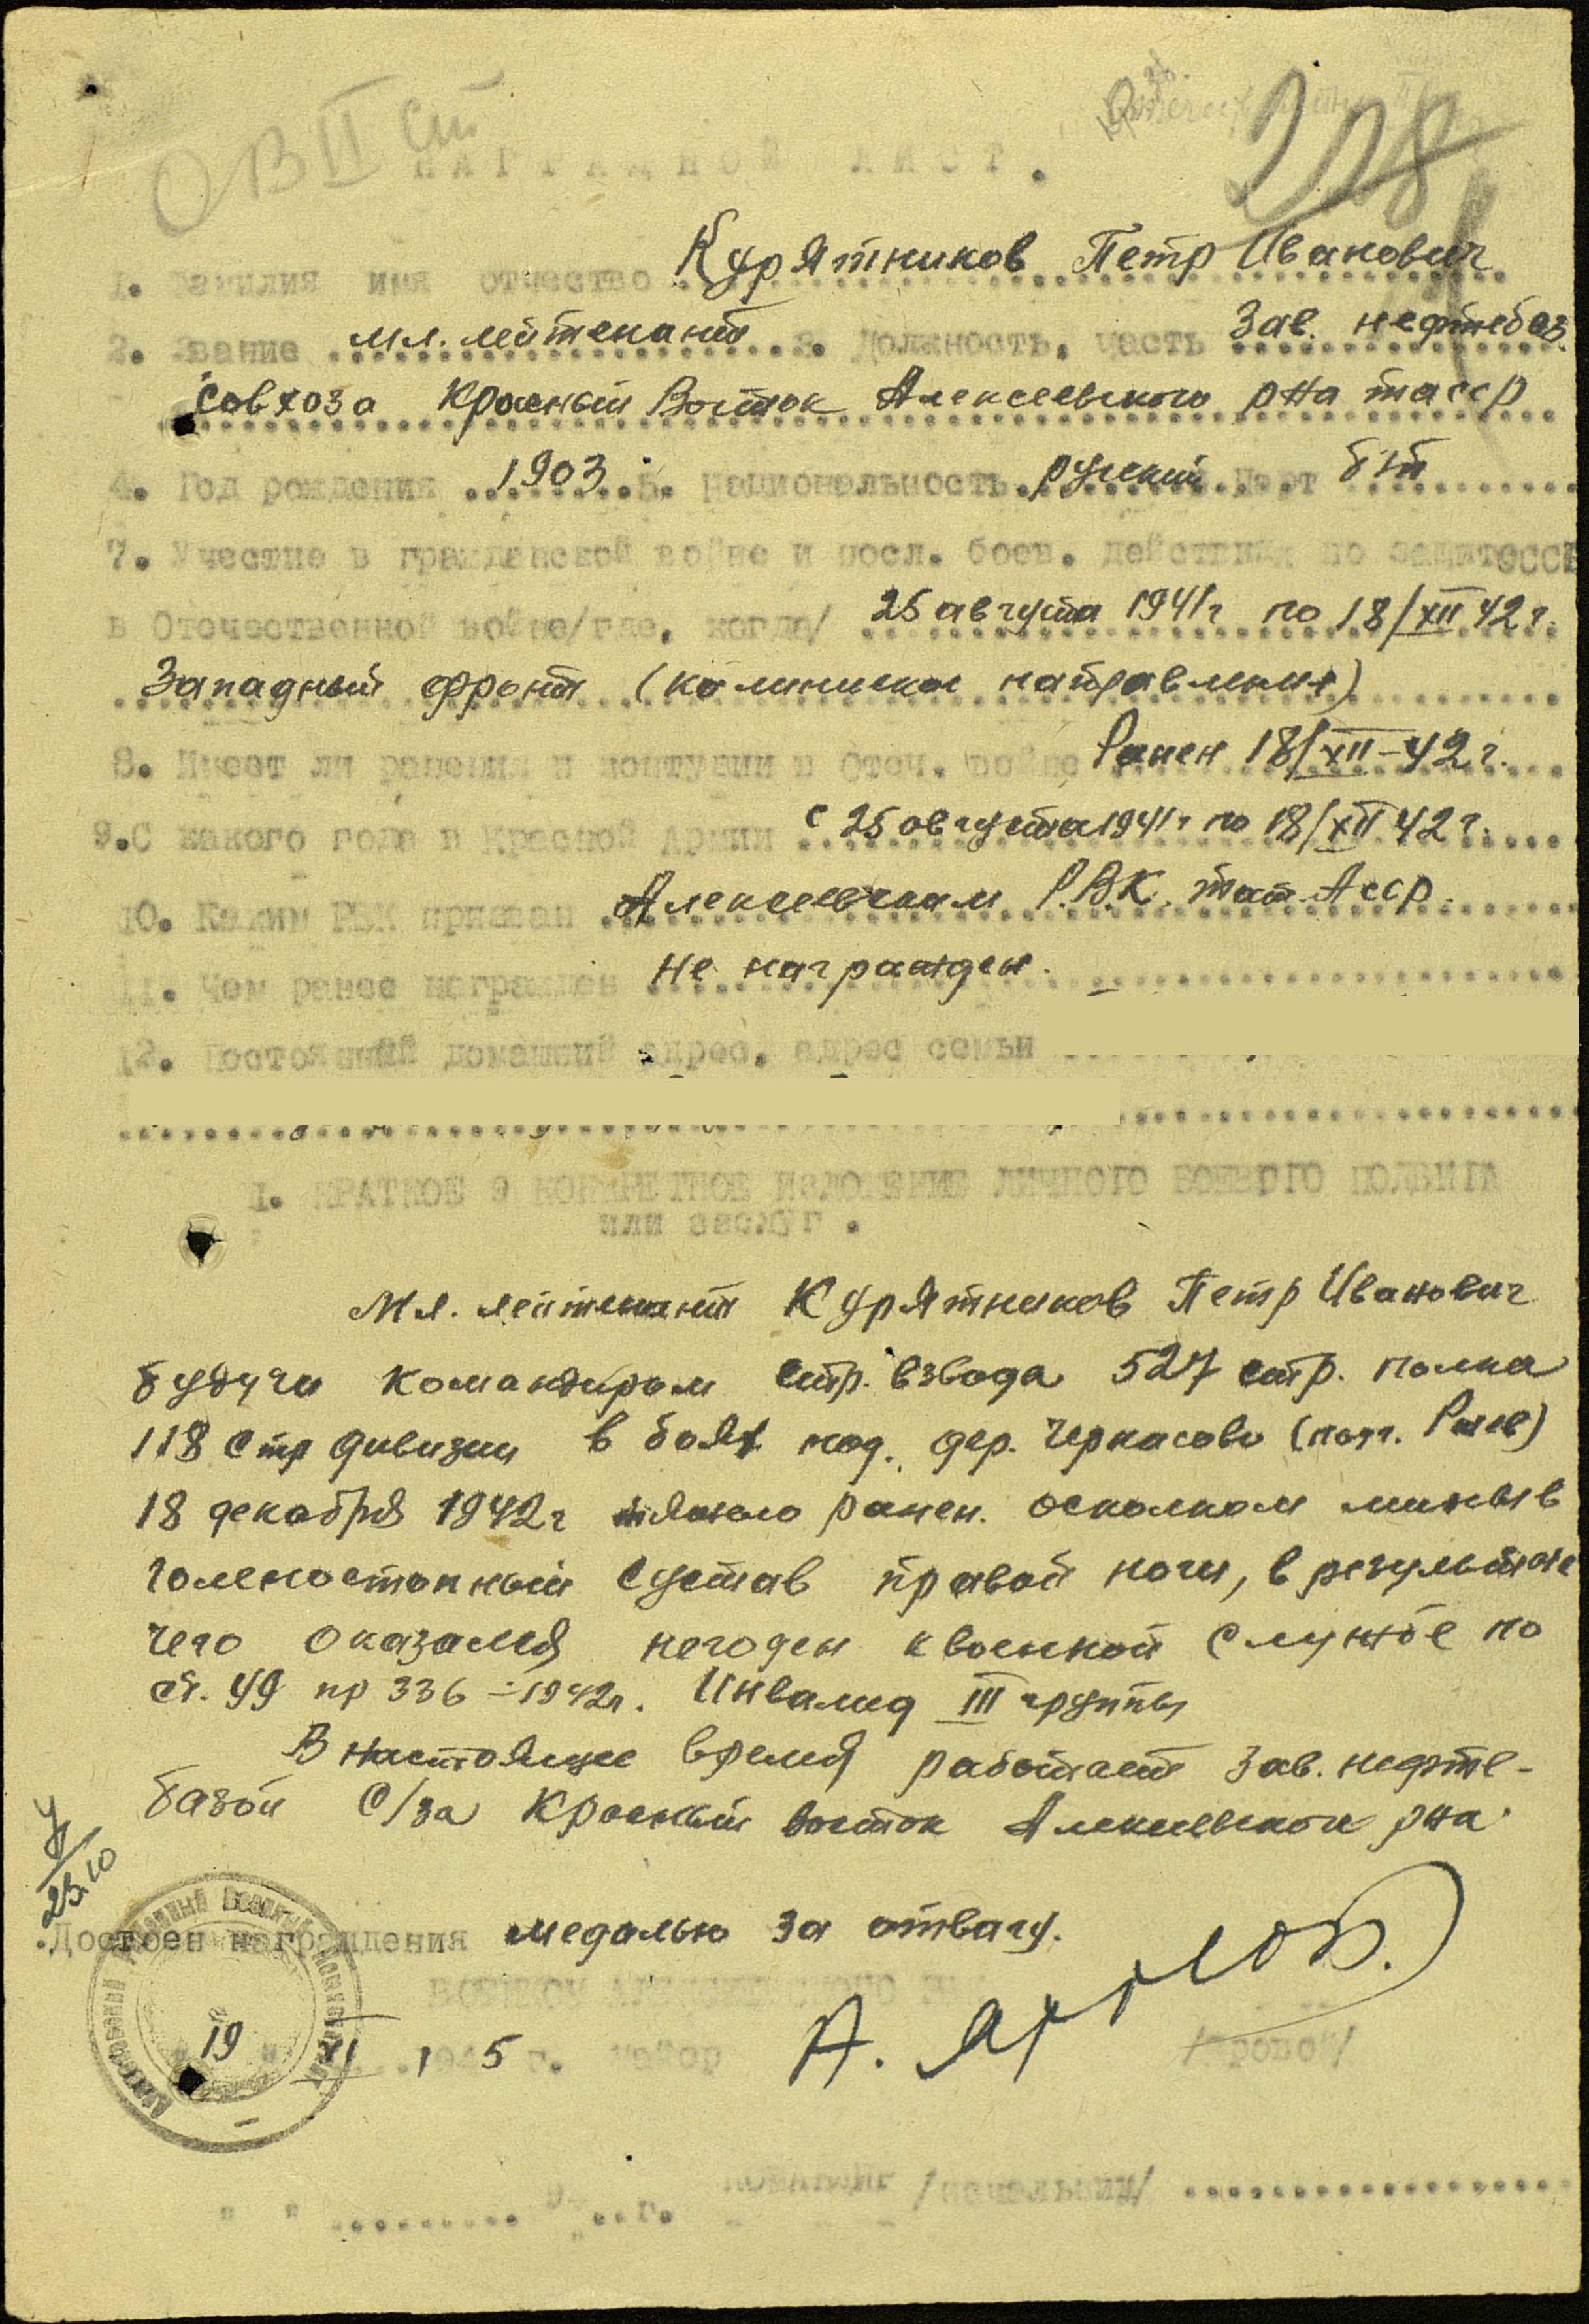 ОВ II ст
228
НАГРАДНОЙ ЛИСТ.
1. Фамилия имя отчество Курятников Петр Иванович
2. Звание мл. лейтенант 3. Должность, часть Зав. нефтебаз.
совхоза Красный Восток Алексеевского р-на тасср
4. Год рождения 1903 5. Национальность русский 6. Парт б/п
7. Участие в гражданской войне и посл. боев. действиях по защите СССР
в Отечественной войне /где, когда/ 25 августа 1941 г по 18/XII 42 г.
Западный фронт (калининское направление)
8. Имеет ли ранения и контузии в Отеч. войне Ранен 18/XII-42 г.
9. С какого года в Красной Армии с 25 августа 1941 г по 18/XII 42 г.
10. Каким РВК призван Алексеевским Р.В.К. тат. Асср.
11. Чем ранее награжден не награжден.
12. Постоянный домашний адрес, адрес семьи
1. КРАТКОЕ КОНКРЕТНОЕ ИЗЛОЖЕНИЕ ЛИЧНОГО БОЕВОГО ПОДВИГА
или заслуг.
Мл. лейтенант Курятников Петр Иванович
будучи командиром стр. взвода 527 стр. полка
118 стр дивизии в боях под. дер. Черкасово (Ржев)
18 декабря 1942 г тяжело ранен. осколком мины в
голеностопный сустав правой ноги, в результате
чего оказался негоден к военной службе по
ст. 49 пр 336 - 1942 г. Инвалид III группы
В настоящее время работает зав. нефте-
базой С/за Красный восток Алексеевского р-на.
У
25.10
Достоен награждения медалью за отвагу.
19 XI 1945 г. Майор А. Яхлов
Командир /начальник/